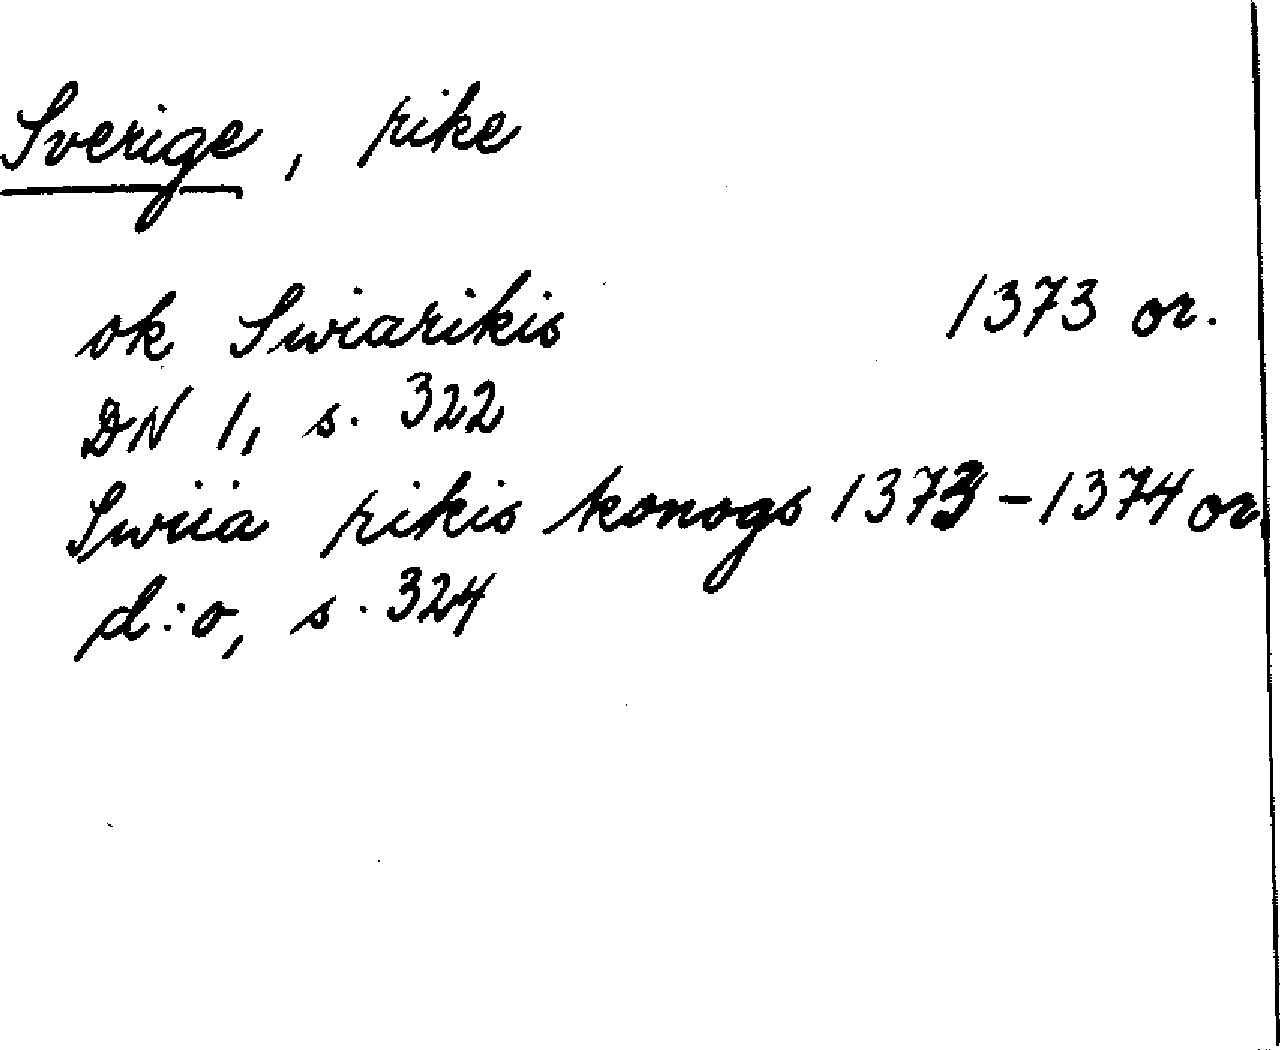 Sverige, rike
ok Swiarikis 1373 or.
DN 1, s. 322
Swiia rikis konogs 1373-1374 or.
d:o, s. 324